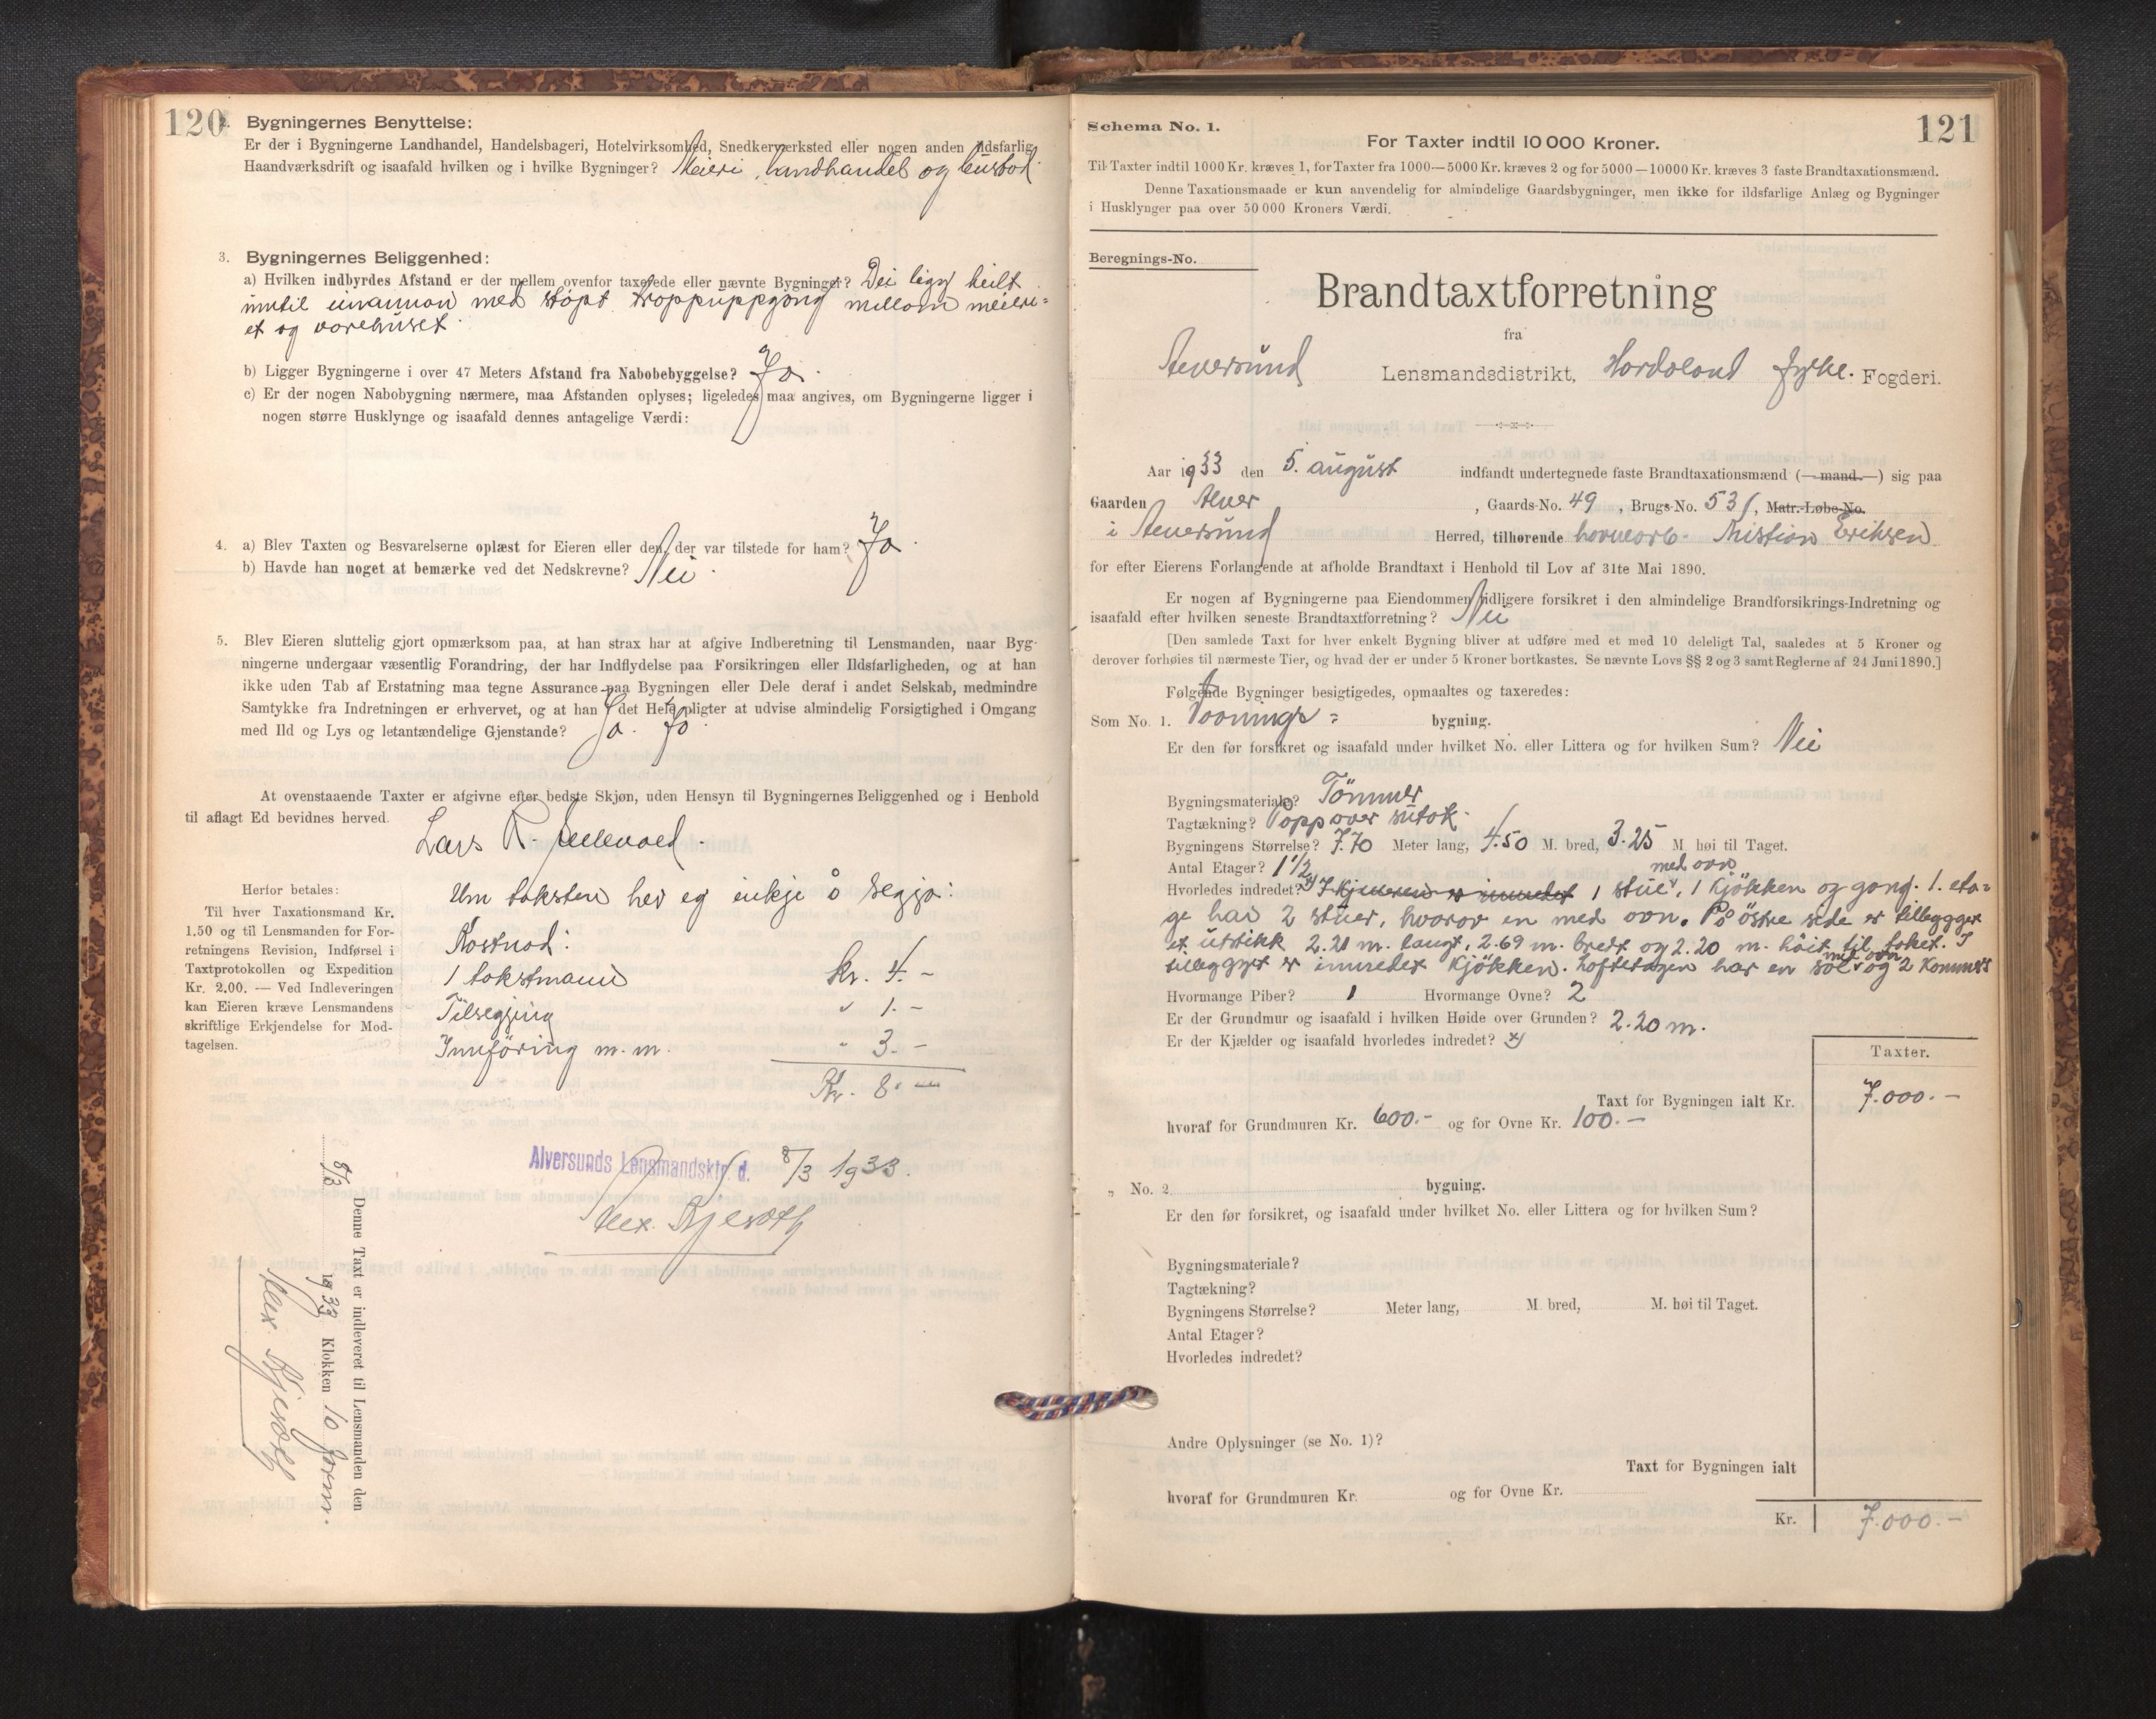 120
2. Bygningernes Benyttelse:
Er der i Bygningerne Landhandel, Handelsbageri, Hotelvirksomhed, Snedkerværksted eller nogen anden ildsfarlig
Haandværksdrift og isaafald hvilken og i hvilke Bygninger? Meieri, landhandel og bustad.
3. Bygningernes Beliggenhed:
a) Hvilken indbyrdes Afstand er der mellem ovenfor taxerede eller nævnte Bygninger? Dei ligg heilt
inntil einannan med støpt troppuppgong millom meieri=
et og varehuset.
b) Ligger Bygningerne i over 47 Meters Afstand fra Nabobebyggelse? Ja.
c) Er der nogen Nabobygning nærmere, maa Afstanden oplyses; ligeledes maa angives, om Bygningerne ligger i
nogen større Husklynge og isaafald dennes antagelige Værdi:
4. a) Blev Taxten og Besvarelserne oplæst for Eieren eller den, der var tilstede for ham? Ja.
b) Havde han noget at bemærke ved det Nedskrevne? Nei.
5. Blev Eieren sluttelig gjort opmærksom paa, at han strax har at afgive Indberetning til Lensmanden, naar Byg-
ningerne undergaar væsentlig Forandring, der har Indflydelse paa Forsikringen eller Ildsfarligheden, og at han
ikke uden Tab af Erstatning maa tegne Assurance paa Bygningen eller Dele deraf i andet Selskab, medmindre
Samtykke fra Indretningen er erhvervet, og at han i det Hele pligter at udvise almindelig Forsigtighed i Omgang
med Ild og Lys og letantændelige Gjenstande? Ja. Ja.
At ovenstaaende Taxter er afgivne efter bedste Skjøn, uden Hensyn til Bygningernes Beliggenhed og i Henhold
til aflagt Ed bevidnes herved.
Lars R.
Herfor betales:
Til hver Taxationsmand Kr.
1.50 og til Lensmanden for For-
retningens Revision, Indførsel i
Taxtprotokollen og Expedition
Kr. 2.00. — Ved Indleveringen
kan Eieren kræve Lensmandens
skriftlige Erkjendelse for Mod-
tagelsen.
Um taksten hev eg inkje å segja:
Kostnad:
1 takstmann Kr. 4.-
Tilsegjing " 1.-
Innføring m.m. " 3.-
Kr. 8.-
Alversunds Lensmandsktr. d. 8/3 1933.
Denne Taxt er indleveret til Lensmanden den
8/3 1933 Klokken 10 form.
121
Schema No. 1.
For Taxter indtil 10 000 Kroner.
Til Taxter indtil 1000 Kr. kræves 1, for Taxter fra 1000—5000 Kr. kræves 2 og for 5000—10000 Kr. kræves 3 faste Brandtaxationsmænd.
Denne Taxationsmaade er kun anvendelig for almindelige Gaardsbygninger, men ikke for ildsfarlige Anlæg og Bygninger
i Husklynger paa over 50 000 Kroners Værdi.
Beregnings-No.
Brandtaxtforretning
fra
Alversund Lensmandsdistrikt, Hordaland fylke. Fogderi.
Aar 1933 den 5. august indfandt undertegnede faste Brandtaxationsmænd (—mand.—) sig paa
Gaarden Alver, Gaards-No. 49, Brugs-No. 53, Matr.-Løbe-No.
i Alversund Herred, tilhørende havnearb. Kristian Eriksen
for efter Eierens Forlangende at afholde Brandtaxt i Henhold til Lov af 31te Mai 1890.
Er nogen af Bygningerne paa Eiendommen tidligere forsikret i den almindelige Brandforsikrings-Indretning og
isaafald efter hvilken seneste Brandtaxtforretning? Nei
[Den samlede Taxt for hver enkelt Bygning bliver at udføre med et med 10 deleligt Tal, saaledes at 5 Kroner og
derover forhøies til nærmeste Tier, og hvad der er under 5 Kroner bortkastes. Se nævnte Lovs §§ 2 og 3 samt Reglerne af 24 Juni 1890.]
Følgende Bygninger besigtigedes, opmaaltes og taxeredes:
Som No. 1. Vaanings= bygning.
Er den før forsikret og isaafald under hvilket No. eller Littera og for hvilken Sum? Nei
Bygningsmateriale? Tömmer
Tagtækning? Papp over sutak.
Bygningens Størrelse? 7.70 Meter lang, 4.50 M. bred, 3.25 M. høi til Taget.
Antal Etager? 1 1/2
Hvorledes indredet? x) I kjelleren er innredet 1 stue med ovn, 1 kjøkken og gang. 1. eta=
ge har 2 stuer, hvorav en med ovn. På østre side er tilleggget
et utstikk 2.21 m. langt, 2.69 m. bredt og 2.20 m. höit til taket. I
tillegget er innredet kjøkken. Loftetagen har en sal med ovn og 2 kammers
Hvormange Piber? 1 Hvormange Ovne? 2
Er der Grundmur og isaafald i hvilken Høide over Grunden? 2.20 m.
Er der Kjælder og isaafald hvorledes indredet? x)
Taxter.
Taxt for Bygningen ialt Kr. 7.000.-
hvoraf for Grundmuren Kr. 600.- og for Ovne Kr. 100.-
„ No. 2 bygning.
Er den før forsikret, og isaafald under hvilket No. eller Littera og for hvilken Sum?
Bygningsmateriale?
Tagtækning?
Bygningens Størrelse? Meter lang, M. bred, M. høi til Taget.
Antal Etager?
Hvorledes indredet?
Andre Oplysninger (se No. 1)?
Taxt for Bygningen ialt
hvoraf for Grundmuren Kr. og for Ovne Kr.
Kr. 7.000.-